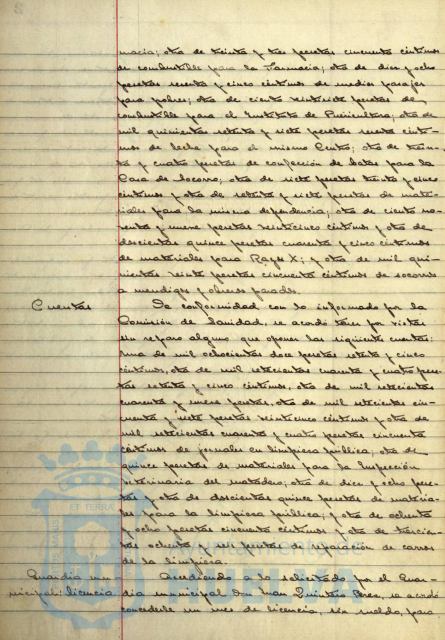 macia; otra de treinta y tres pesetas cincuenta céntimos
de combustible para la Farmacia; otra de diez y ocho
pesetas sesenta y cinco céntimos de medios pasajes
para pobres; otra de ciento veintisiete pesetas de
combustible para el Instituto de Puericultura; otra de
mil quinientas setenta y siete pesetas sesenta cénti-
mos de leche para el mismo Centro; otra de trein-
ta y cuatro pesetas de confección de batas para la
Casa de Socorro; otra de siete pesetas treinta y cinco
céntimos y otra de setenta y siete pesetas de mate-
riales para la misma dependencia; otra de ciento no-
venta y nueve pesetas veinticinco céntimos y otra de
doscientas quince pesetas cuarenta y cinco céntimos
de materiales para Rayos X; y otra de mil qui-
nientas veinte pesetas cincuenta céntimos de socorros
a mendigos y obreros parados.
Cuentas
De conformidad con lo informado por la
Comisión de Sanidad, se acordó tener por vistas
sin reparo alguno que oponer las siguientes cuentas:
Una de mil ochocientas doce pesetas setenta y cinco
céntimos, otra de mil setecientas cuarenta y cuatro pese-
tas setenta y cinco céntimos, otra de mil setecientas
cuarenta y nueve pesetas, otra de mil setecientas cin-
cuenta y siete pesetas veinticinco céntimos y otra de
mil setecientas cuarenta y cuatro pesetas cincuenta
céntimos de jornales en limpieza pública; otra de
quince pesetas de materiales para la Inspección
Veterinaria del matadero; otra de diez y ocho pese-
tas y otra de doscientas quince pesetas de materia-
les para la limpieza pública; y otra de ochenta
y ocho pesetas cincuenta céntimos y otra de trescien-
tas ochenta y seis pesetas de reparación de carros
de la limpieza.
Guardia mu-
nicipal: licencia
Accediendo a lo solicitado por el Guar-
dia municipal Don Juan Quintero Pérez, se acordó
concederle un mes de licencia, sin sueldo, para